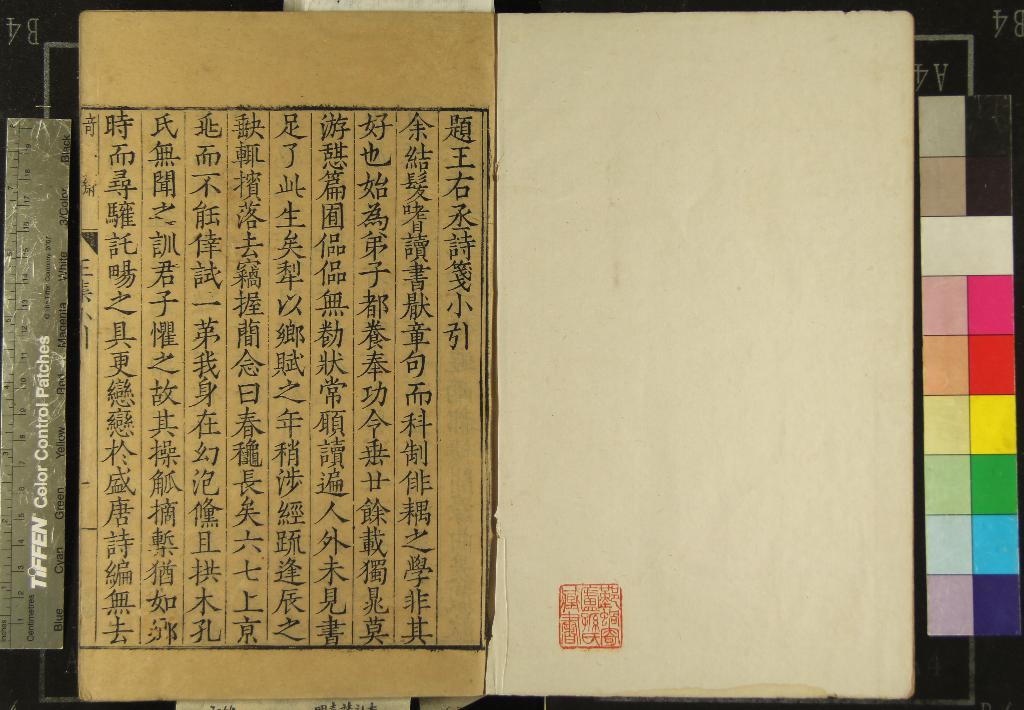 題王右丞詩箋小引
余結髮嗜讀書厭章句而科制俳耦之學非其
好也始為弟子都養奉功令垂廿餘載獨晁莫
游憇篇囿偘偘無勌狀常願讀遍人外未見書
足了此生矣犁以鄉賦之年稍涉經䟽逢辰之
缺輒擯落去竊握蕳念曰春穐長矣六七上京
兆而不能倖試一苐我身在幻泡儻且拱木孔
氏無聞之訓君子懼之故其操觚摘槧猶如
時而尋驩託暘之具更戀戀於盛唐詩編無去
TIFFEN Color Control Patches
Blue
Cyan
Green
Yellow
Red
Magenta
White
3/Color
Black
Centimetres
Inches
B4
A4